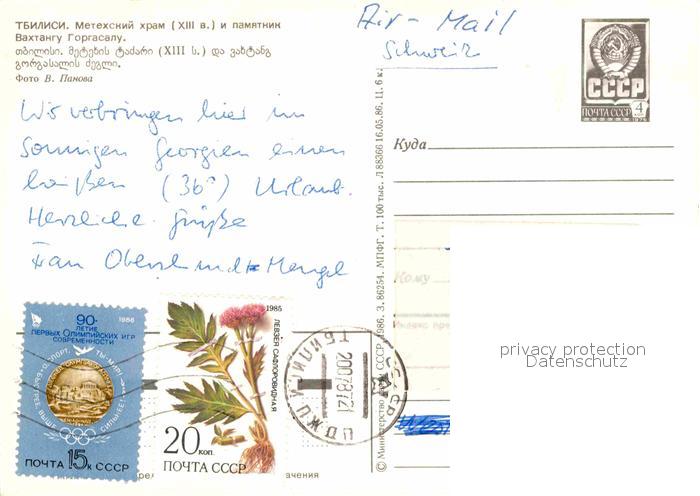 ТБИЛИСИ. Метехский храм (XIII в.) и памятник
Вахтангу Горгасалу.
თბილისი. მეტეხის ტაძარი (XIII ს.) და ვახტანგ
გორგასალის ძეგლი.
Фото В. Панова
Air-Mail
Schweiz
СССР
ПОЧТА СССР 4
Wir verbringen hier im
Sonnigen Georgien einen
heißen (36°) Urlaub.
Herzliche Grüße
Куда
Кому
© Министерство связи СССР, 1986. З. 86254. МПФГ. Т. 100 тыс. Л 88366 16.05.86, II. 6 к.
90-
ЛЕТИЕ
ПЕРВЫХ ОЛИМПИЙСКИХ ИГР
СОВРЕМЕННОСТИ
1986
ПОЧТА 15к СССР
1985
ЛЕВЗЕЯ САФЛОРОВИДНАЯ
20 коп.
ПОЧТА СССР
privacy protection
Datenschutz